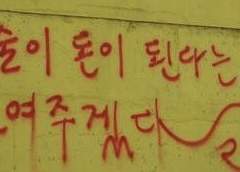 술이 돈이 된다는
여주겠다